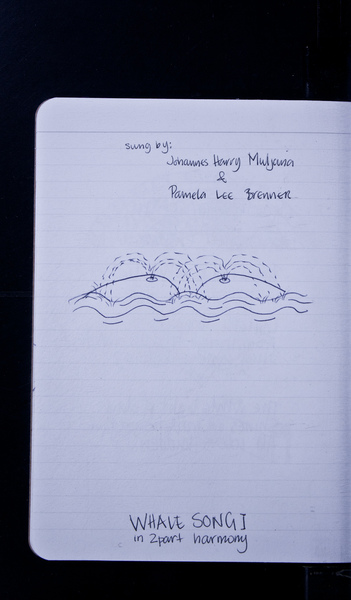 sung by:
Johannes Harry Muljana
&
Pamela Lee Brenner
WHALE SONG I
in 2part harmony